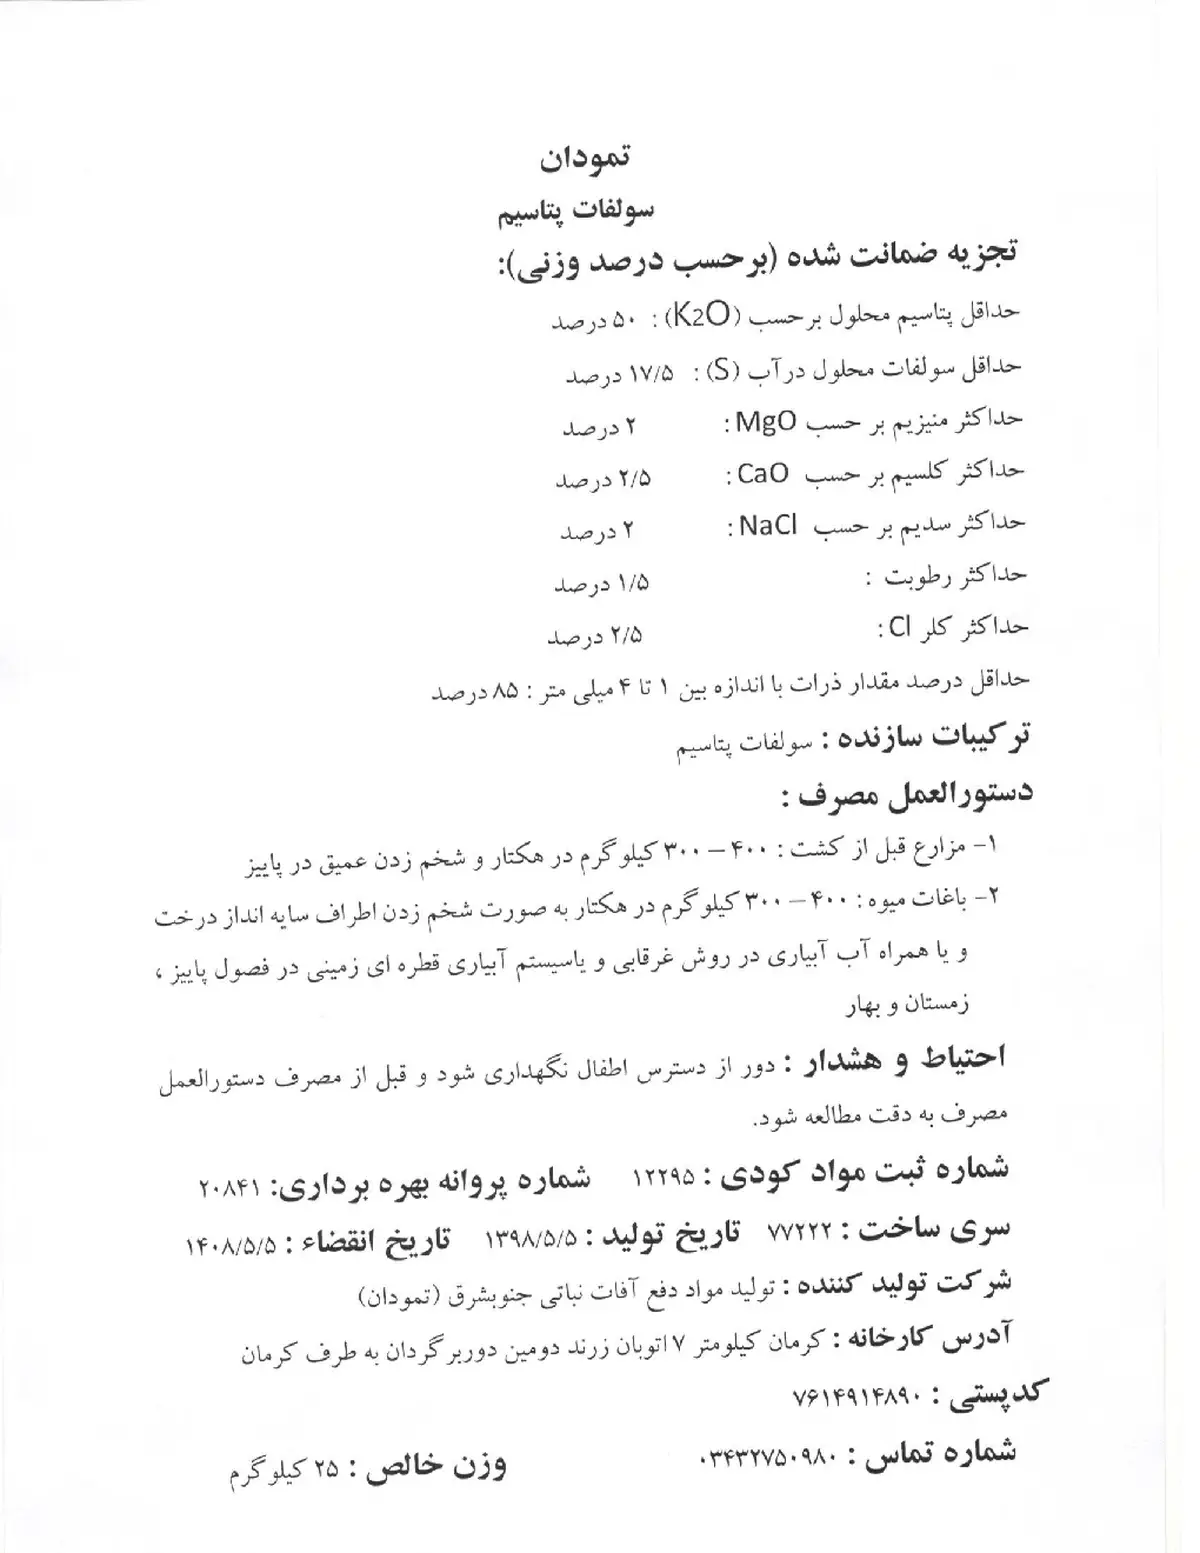 تمودان
سولفات پتاسیم
تجزیه ضمانت شده (برحسب درصد وزنی):
حداقل پتاسیم محلول برحسب (K2O) : ۵۰ درصد
حداقل سولفات محلول درآب (S) : ۱۷/۵ درصد
حداکثر منیزیم بر حسب MgO : ۲ درصد
حداکثر کلسیم بر حسب CaO : ۲/۵ درصد
حداکثر سدیم بر حسب NaCl : ۲ درصد
حداکثر رطوبت : ۱/۵ درصد
حداکثر کلر Cl : ۲/۵ درصد
حداقل درصد مقدار ذرات با اندازه بین ۱ تا ۴ میلی متر : ۸۵ درصد
ترکیبات سازنده : سولفات پتاسیم
دستورالعمل مصرف :
۱- مزارع قبل از کشت : ۴۰۰ – ۳۰۰ کیلوگرم در هکتار و شخم زدن عمیق در پاییز
۲- باغات میوه : ۴۰۰ – ۳۰۰ کیلوگرم در هکتار به صورت شخم زدن اطراف سایه انداز درخت
و یا همراه آب آبیاری در روش غرقابی و یاسیستم آبیاری قطره ای زمینی در فصول پاییز ،
زمستان و بهار
احتیاط و هشدار : دور از دسترس اطفال نگهداری شود و قبل از مصرف دستورالعمل
مصرف به دقت مطالعه شود.
شماره ثبت مواد کودی : ۱۲۲۹۵ شماره پروانه بهره برداری: ۲۰۸۴۱
سری ساخت : ۷۷۲۲۲ تاریخ تولید : ۱۳۹۸/۵/۵ تاریخ انقضاء : ۱۴۰۸/۵/۵
شرکت تولید کننده : تولید مواد دفع آفات نباتی جنوبشرق (تمودان)
آدرس کارخانه : کرمان کیلومتر ۷ اتوبان زرند دومین دوربرگردان به طرف کرمان
کدپستی : ۷۶۱۴۹۱۴۸۹۰
شماره تماس : ۰۳۴۳۲۷۵۰۹۸۰ وزن خالص : ۲۵ کیلوگرم